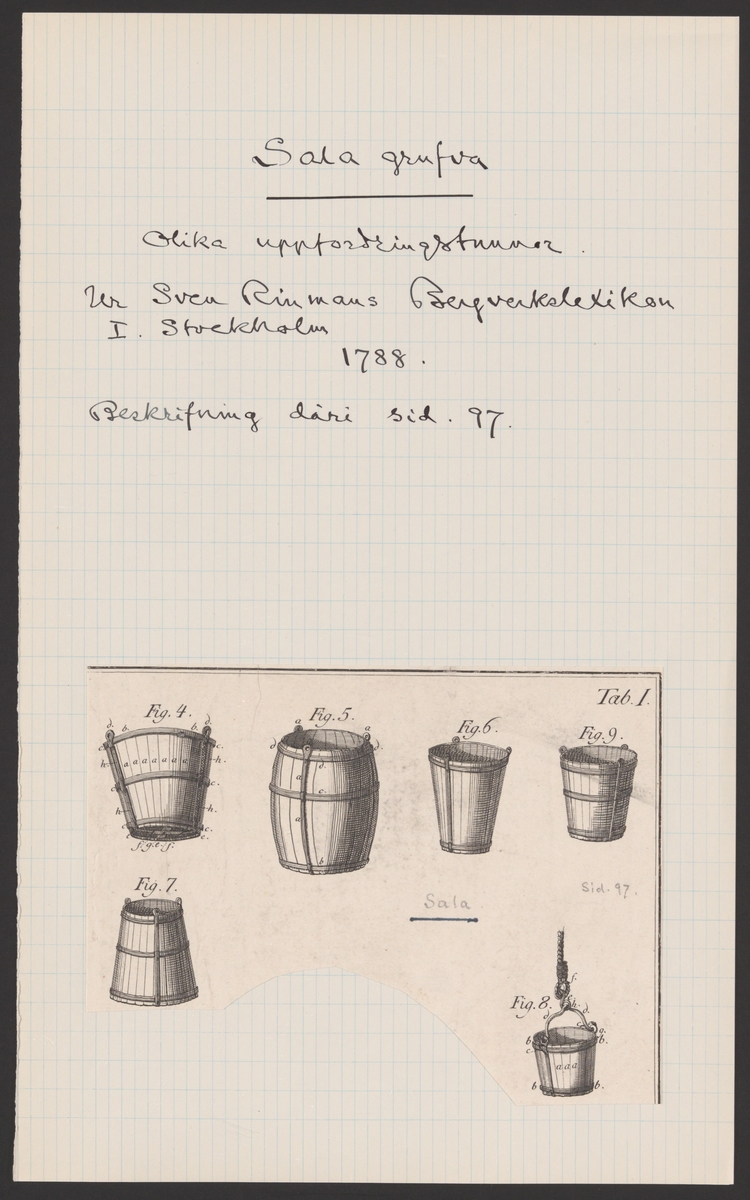 Sala grufva
Olika uppfordringstunnor.
Ur Sven Rinmans Bergverkslexikon
I. Stockholm
1788.
Beskrifning däri sid. 97.
Tab. I.
Fig. 4.
Fig. 5.
Fig. 6.
Fig. 9.
d. b. b. d.
c. c.
h. a a a a a a a h.
c. c.
h. h.
c. c.
f. g. e. f.
a a
d d
d.
a c.
a
b
Fig. 7.
Sala
Sid. 97.
Fig. 8.
f.
h.
d. d.
g.
b b.
c.
a a a
b b.